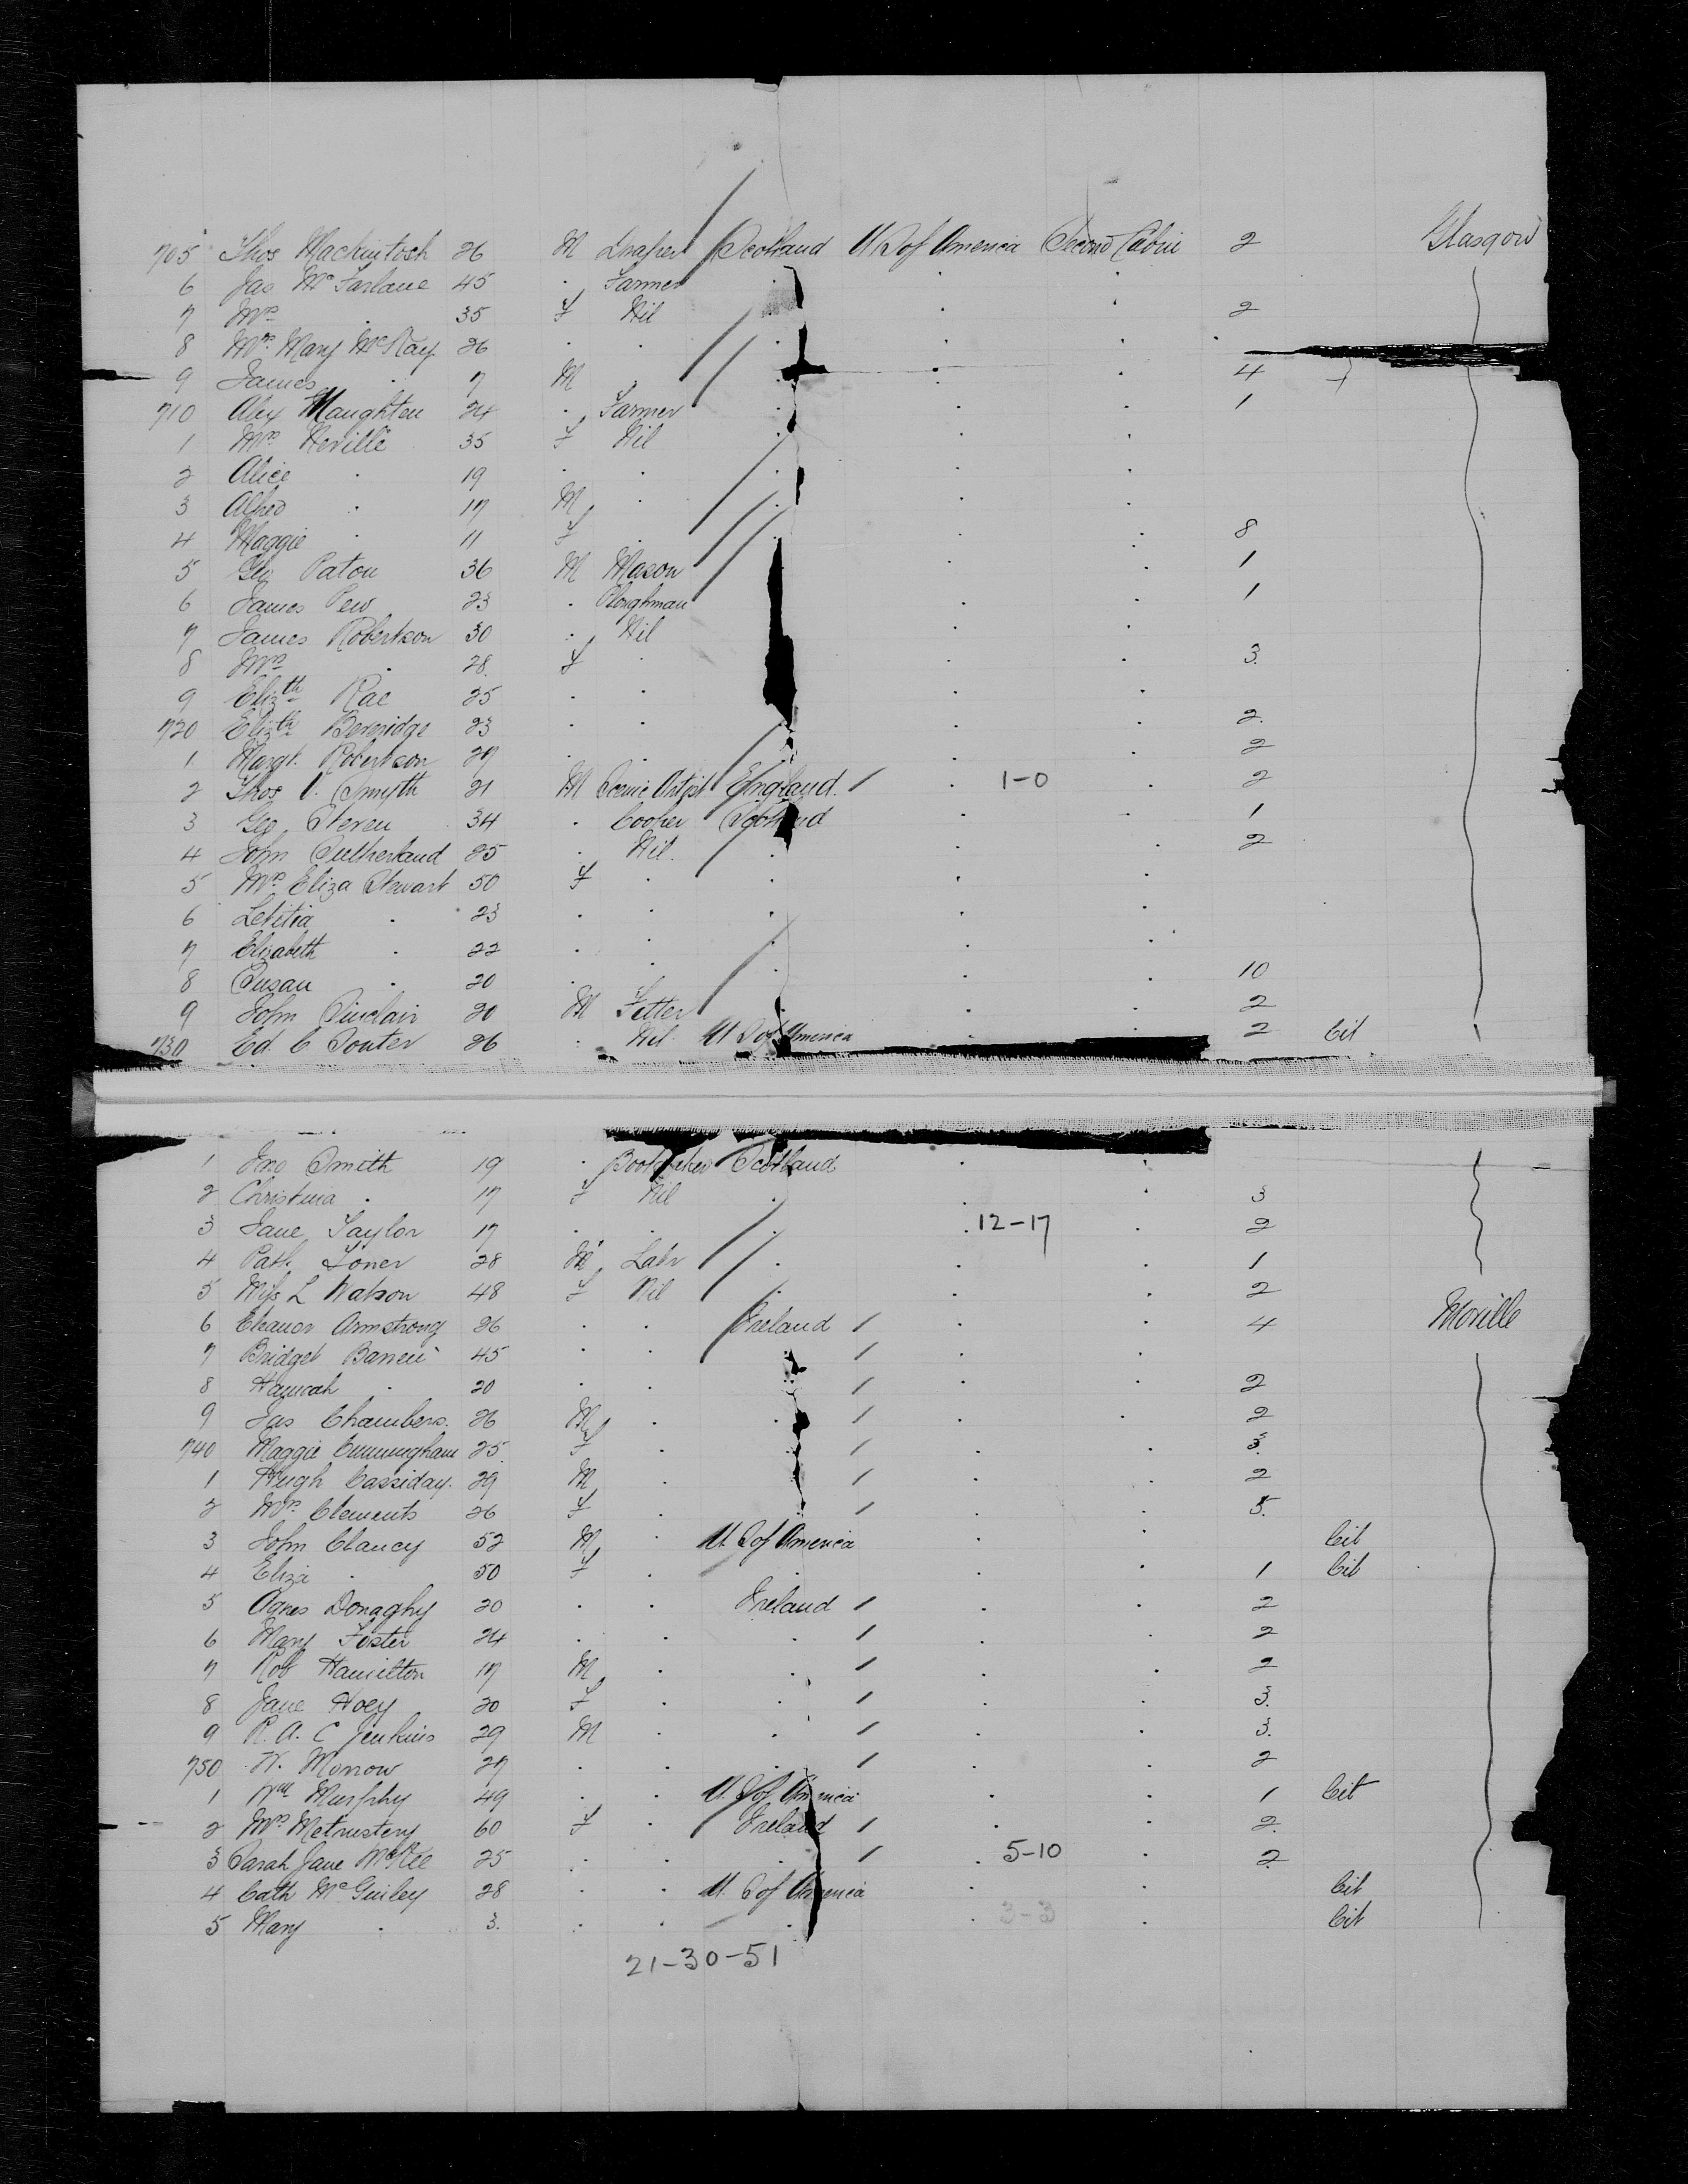 705 Thos Mackintosh 26 M Draper Scotland U S of America Second Cabin 2 Glasgow
6 Jas McFarlane 45 . Farmer . . .
7 Mrs . 35 F Nil . . . 2
8 Mrs Mary McKay 26 . . . . . .
9 James . 7 M . . . . 4
710 Alex Naughten 24 . Farmer . . . 1
1 Mrs Neville 35 F Nil . . .
2 Alice . 19 . . . . .
3 Alfred . 17 M . . . .
4 Maggie . 11 F . . . . 8
5 Geo Paton 36 M Mason . . 1
6 James Pew 23 . Ploughman . . 1
7 James Robertson 30 . Nil . .
8 Mrs . 28 F . . . 3
9 Elizth Rae 25 . . . .
720 Elizth 23 . . . . 2
1 Margt. Robertson 29 . . . . 2
2 Thos V. Smyth 21 M Scenic Artist England / . 1-0 . 2
3 Geo Steven 34 . Cooper Scotland . . 1
4 John Sutherland 25 . Nil . . . 2
5 Mrs Eliza Stewart 50 F . . . .
6 Letitia . 23 . . . . .
7 Elizabeth . 22 . . . . .
8 Susan . 20 . . . . . 10
9 John Sinclair 20 M Fitter . . . 2
730 Ed. C Souter 26 . Nil U S of America . . 2 Cit
1 Jno Smith 19 . Bookseller Scotland . .
2 Christina . 17 F Nil . . . 3
3 Jane Taylor 17 . . . . 12-17 . 2
4 Patk Toner 28 M Labr . . . 1
5 Miss L Watson 48 F Nil . . . 2
6 Eleanor Armstrong 26 . . Ireland / . . 4 Moville
7 Bridget 45 . . . / . .
8 Hannah . 20 . . . / . . 2
9 Jas Chambers. 26 M . . / . . 2
740 Maggie Cunningham 25 F . . / . . 3.
1 Hugh Cassiday. 29 M . . / . . 2
2 Mrs Clements 26 F . . / . . 5.
3 John Clancy 52 M . U. S of America . . Cit
4 Eliza . 50 F . . . . 1 Cit
5 Agnes Donaghy 20 . . Ireland / . . 2
6 Mary Foster 24 . . . / . . 2
7 Rob Hamilton 17 M . . / . . 2
8 Jane Hoey 20 F . . / . . 3.
9 R. A. C Jenkins 29 M . . / . . 3.
750 W. Morrow 27 . . . / . . 2
1 Wm Murphy 49 . . U. S of America . . 1 Cit
2 Mrs 60 F . Ireland / . . 2.
3 Sarah Jane McKee 25 . . . / . 5-10 . 2
4 Cath McGinley 28 . . U. S of America . . Cit
5 Mary . 3. . . . . 3-3 . Cit
21-30-51